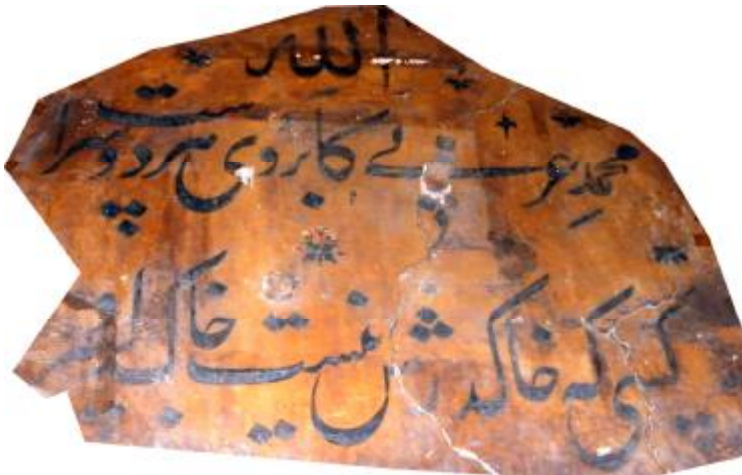 الله
محمدِ عربے کابروی هردو سراست
کسی که خاکدرش نیست خاک